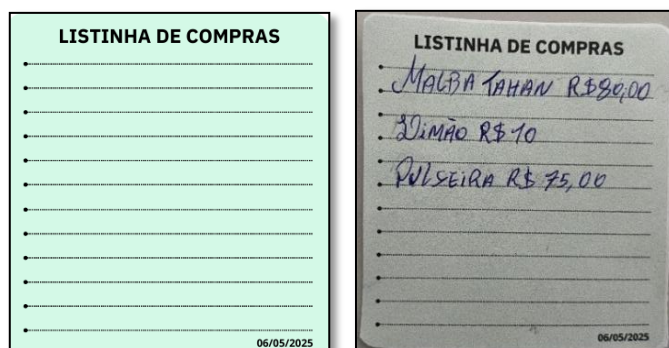 LISTINHA DE COMPRAS
06/05/2025
LISTINHA DE COMPRAS
MALBA TAHAN R$80,00
R$10
PULSEIRA R$ 75,00
06/05/2025